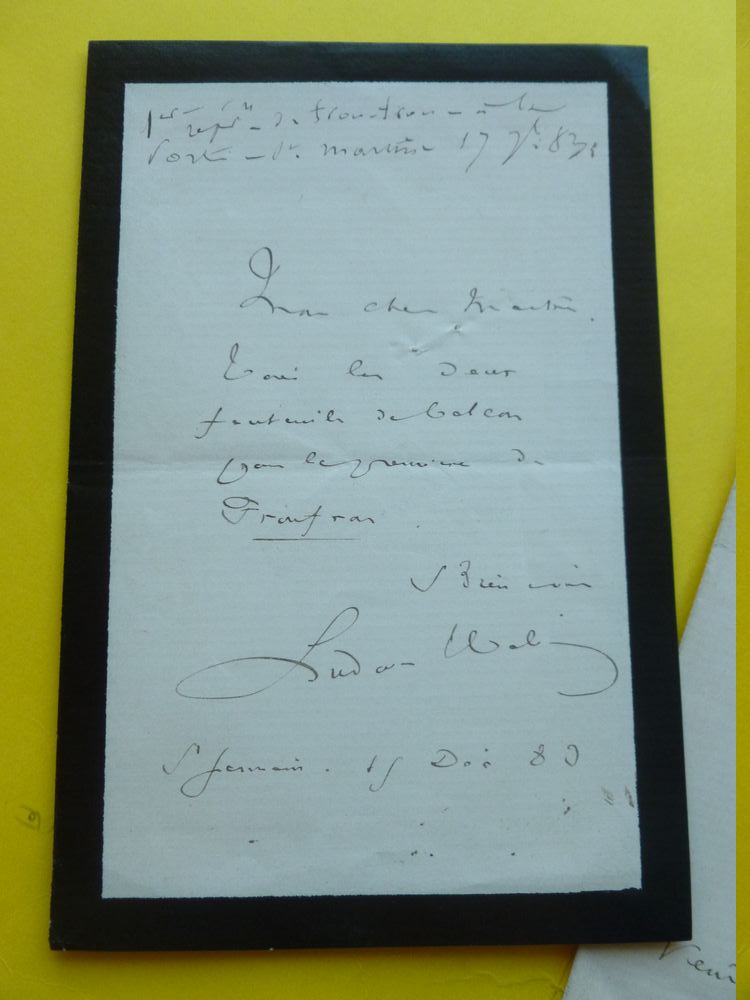 1ère représn de froufrou à la
Porte St Martin 17 Xbre 83
Mon cher Martin,
Voici les deux
fauteuils de balcon
pour la première de
Froufrou.
Bien à vous
Ludovic Halévy
St Germain. 15 Déc 83